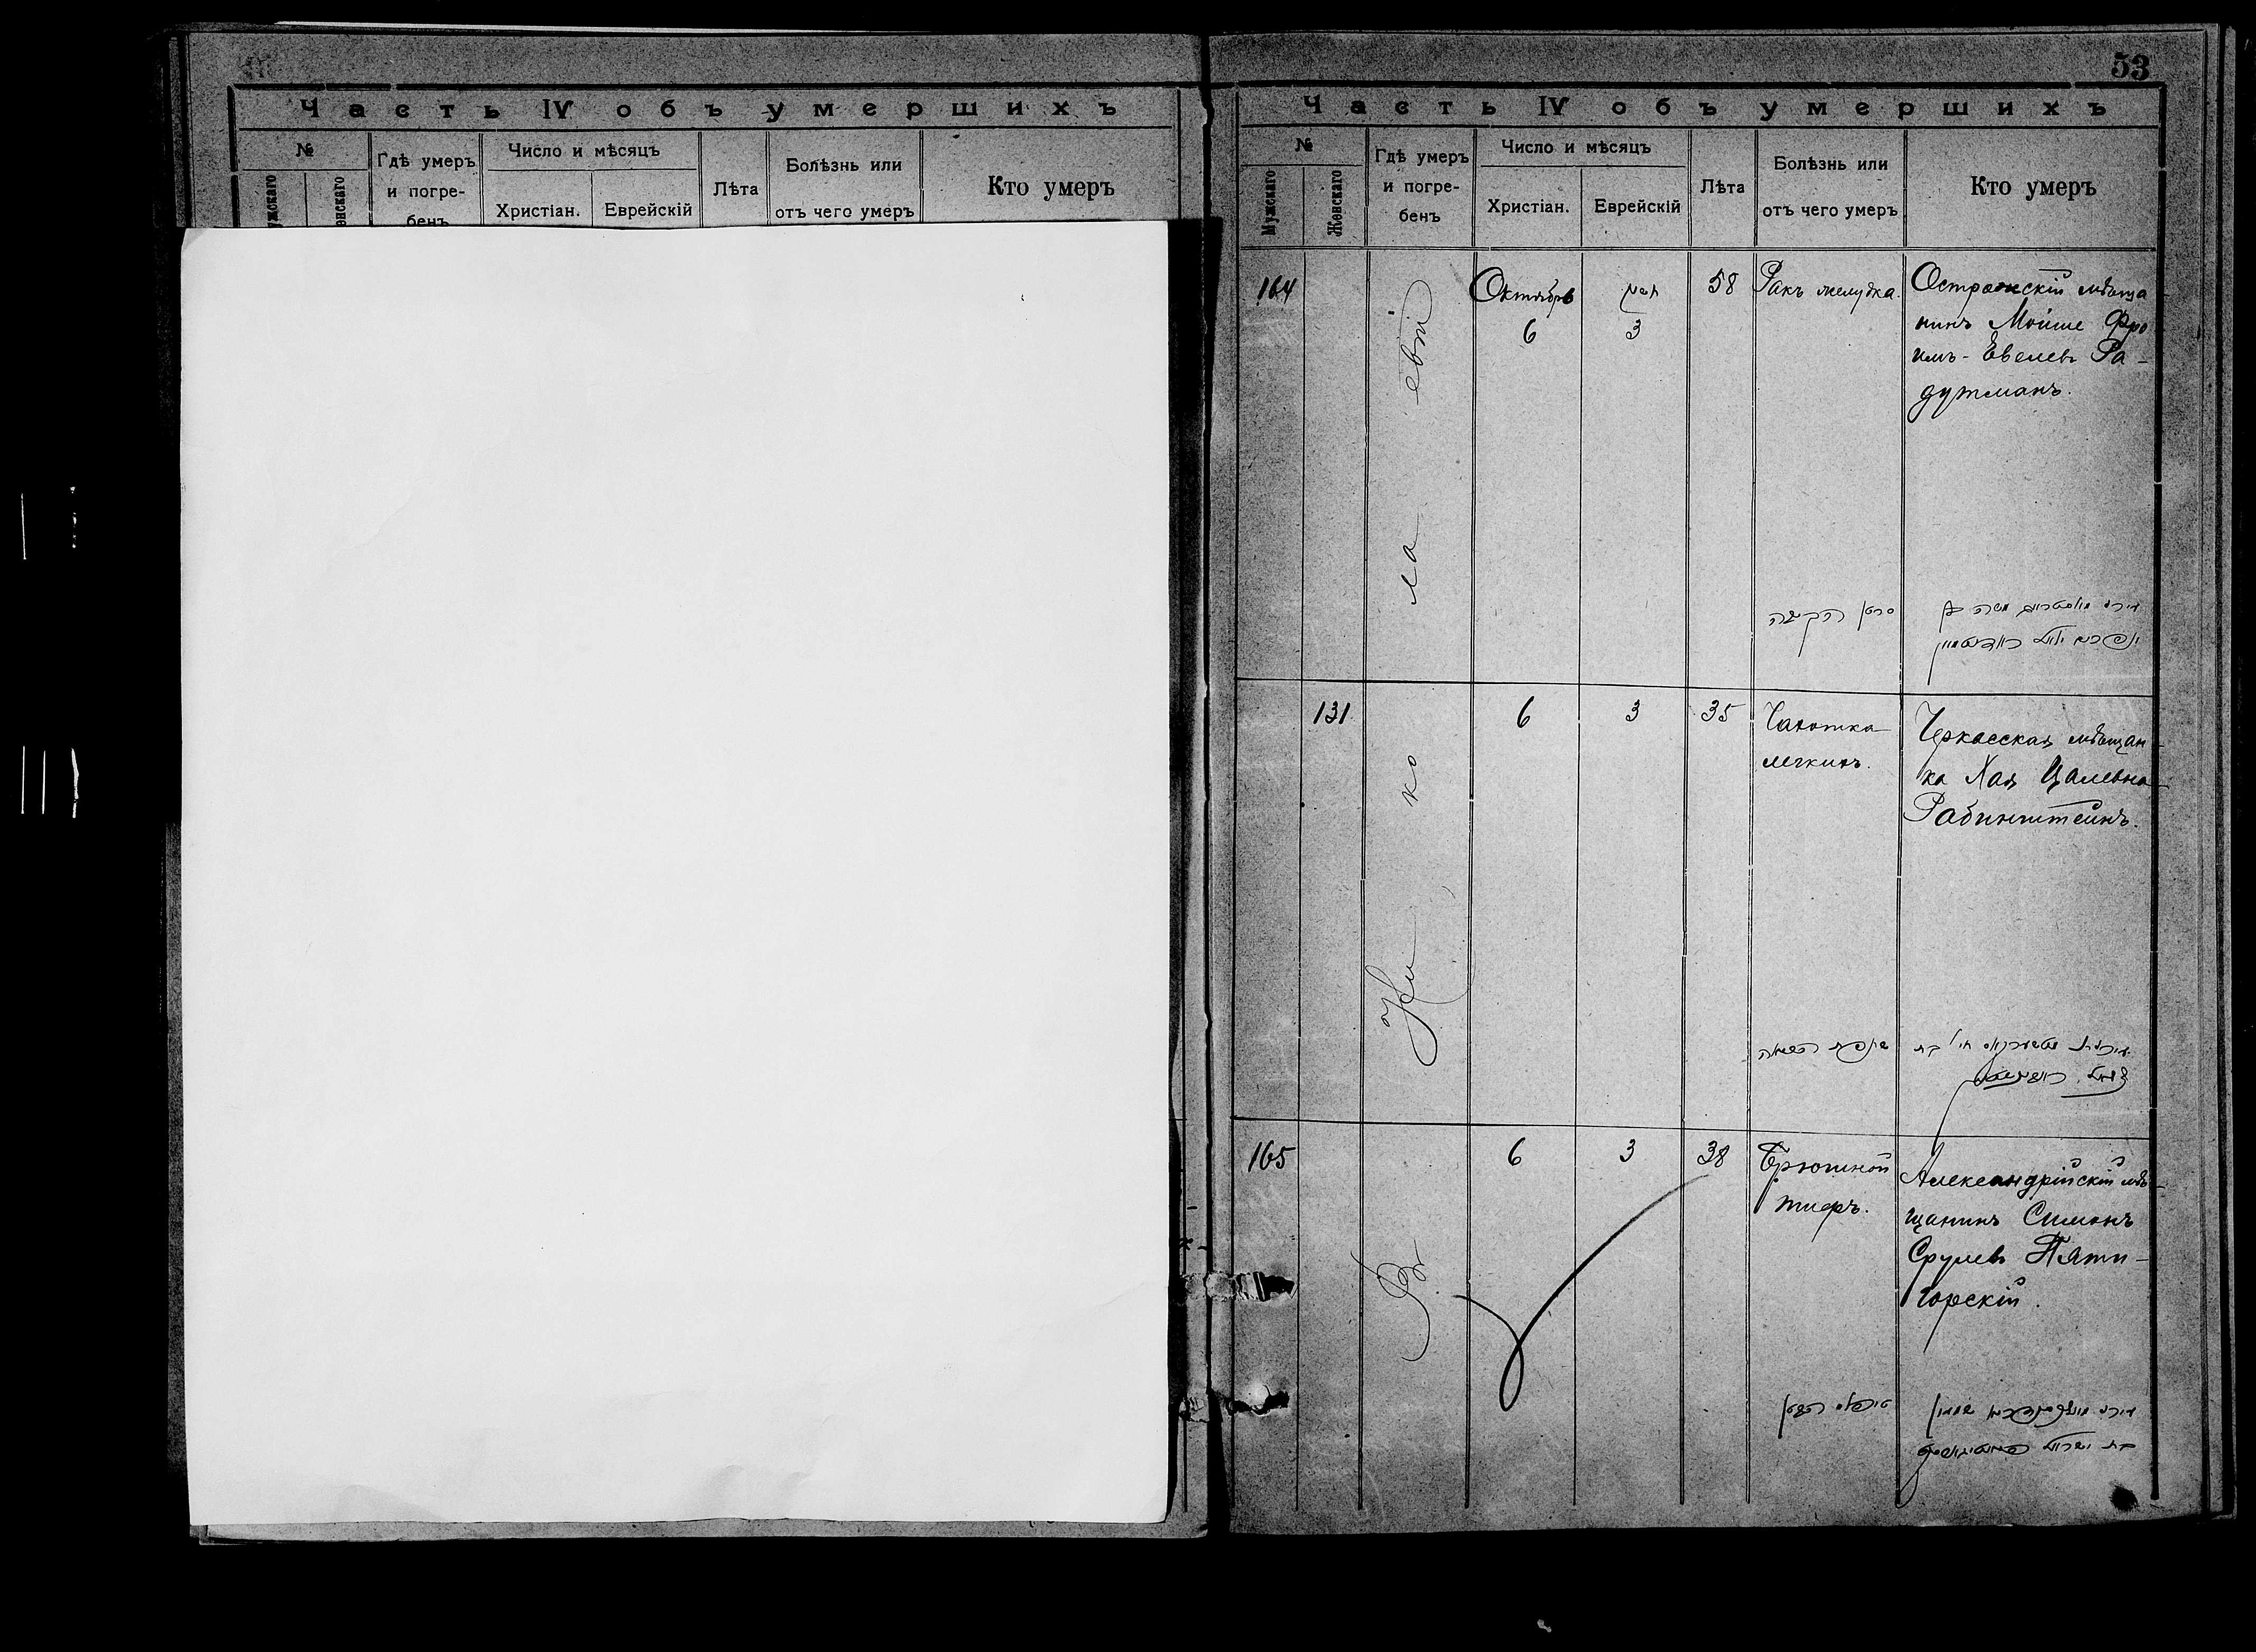 Часть IV объ умершихъ
№
Гдѣ умеръ
и погре-
бенъ
Число и мѣсяцъ
Христіан.
Еврейскій
Лѣта
Болѣзнь или
отъ чего умеръ
Кто умеръ
53
Часть IV объ умершихъ
№
Мужскаго
Женскаго
Гдѣ умеръ
и погре-
бенъ
Число и мѣсяцъ
Христіан.
Еврейскій
Лѣта
Болѣзнь или
отъ чего умеръ
Кто умеръ
Въ Николаевѣ
164
Октябрь
6
3
58
Ракъ желудка.
Острожскій мѣща
нинъ Мойше Фро
имъ-Евелевъ Ра-
дутманъ.
131
6
3
35
Чахотка
легкихъ.
Черкасская мѣщан-
ка Хая Цалевна
Рабинштейнъ.
165
6
3
38
Брюшной
тифъ.
Александрійскій мѣ-
щанинъ Симонъ
Срулевъ Пяти-
горскій.